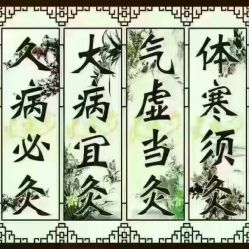 体寒须灸
气虚当灸
大病宜灸
久病必灸